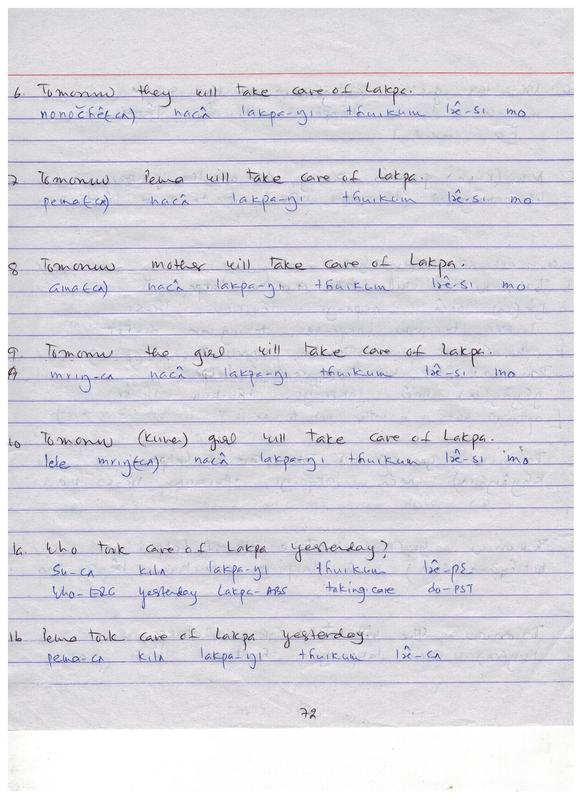 6. Tomorrow they will take care of Lakpa.
nonočhê(-cʌ) nacʌ̂ lakpa-yi thuikum lɔ̂e-si mo
7 Tomorrow Pema will take care of Lakpa.
pema(-cʌ) nacʌ̂ lakpa-yi thuikum lɔ̂e-si mo
8 Tomorrow mother will take care of Lakpa.
ama(-cʌ) nacʌ̂ lakpa-yi thuikum lɔ̂e-si mo
9 Tomorrow the girl will take care of Lakpa.
mriŋ-cʌ nacʌ̂ lakpa-yi thuikum lɔ̂e-si mo
10 Tomorrow (some) girl will take care of Lakpa.
lele mriŋ(-cʌ) nacʌ̂ lakpa-yi thuikum lɔ̂e-si mo
1a. Who took care of Lakpa yesterday?
su-cʌ kilʌ lakpa-yi thuikum lɔ̂e-pɛ
Who-ERG yesterday Lakpa-ABS taking.care do-PST
1b Pema took care of Lakpa yesterday
pema-cʌ kilʌ lakpa-yi thuikum lɔ̂e-cʌ
72